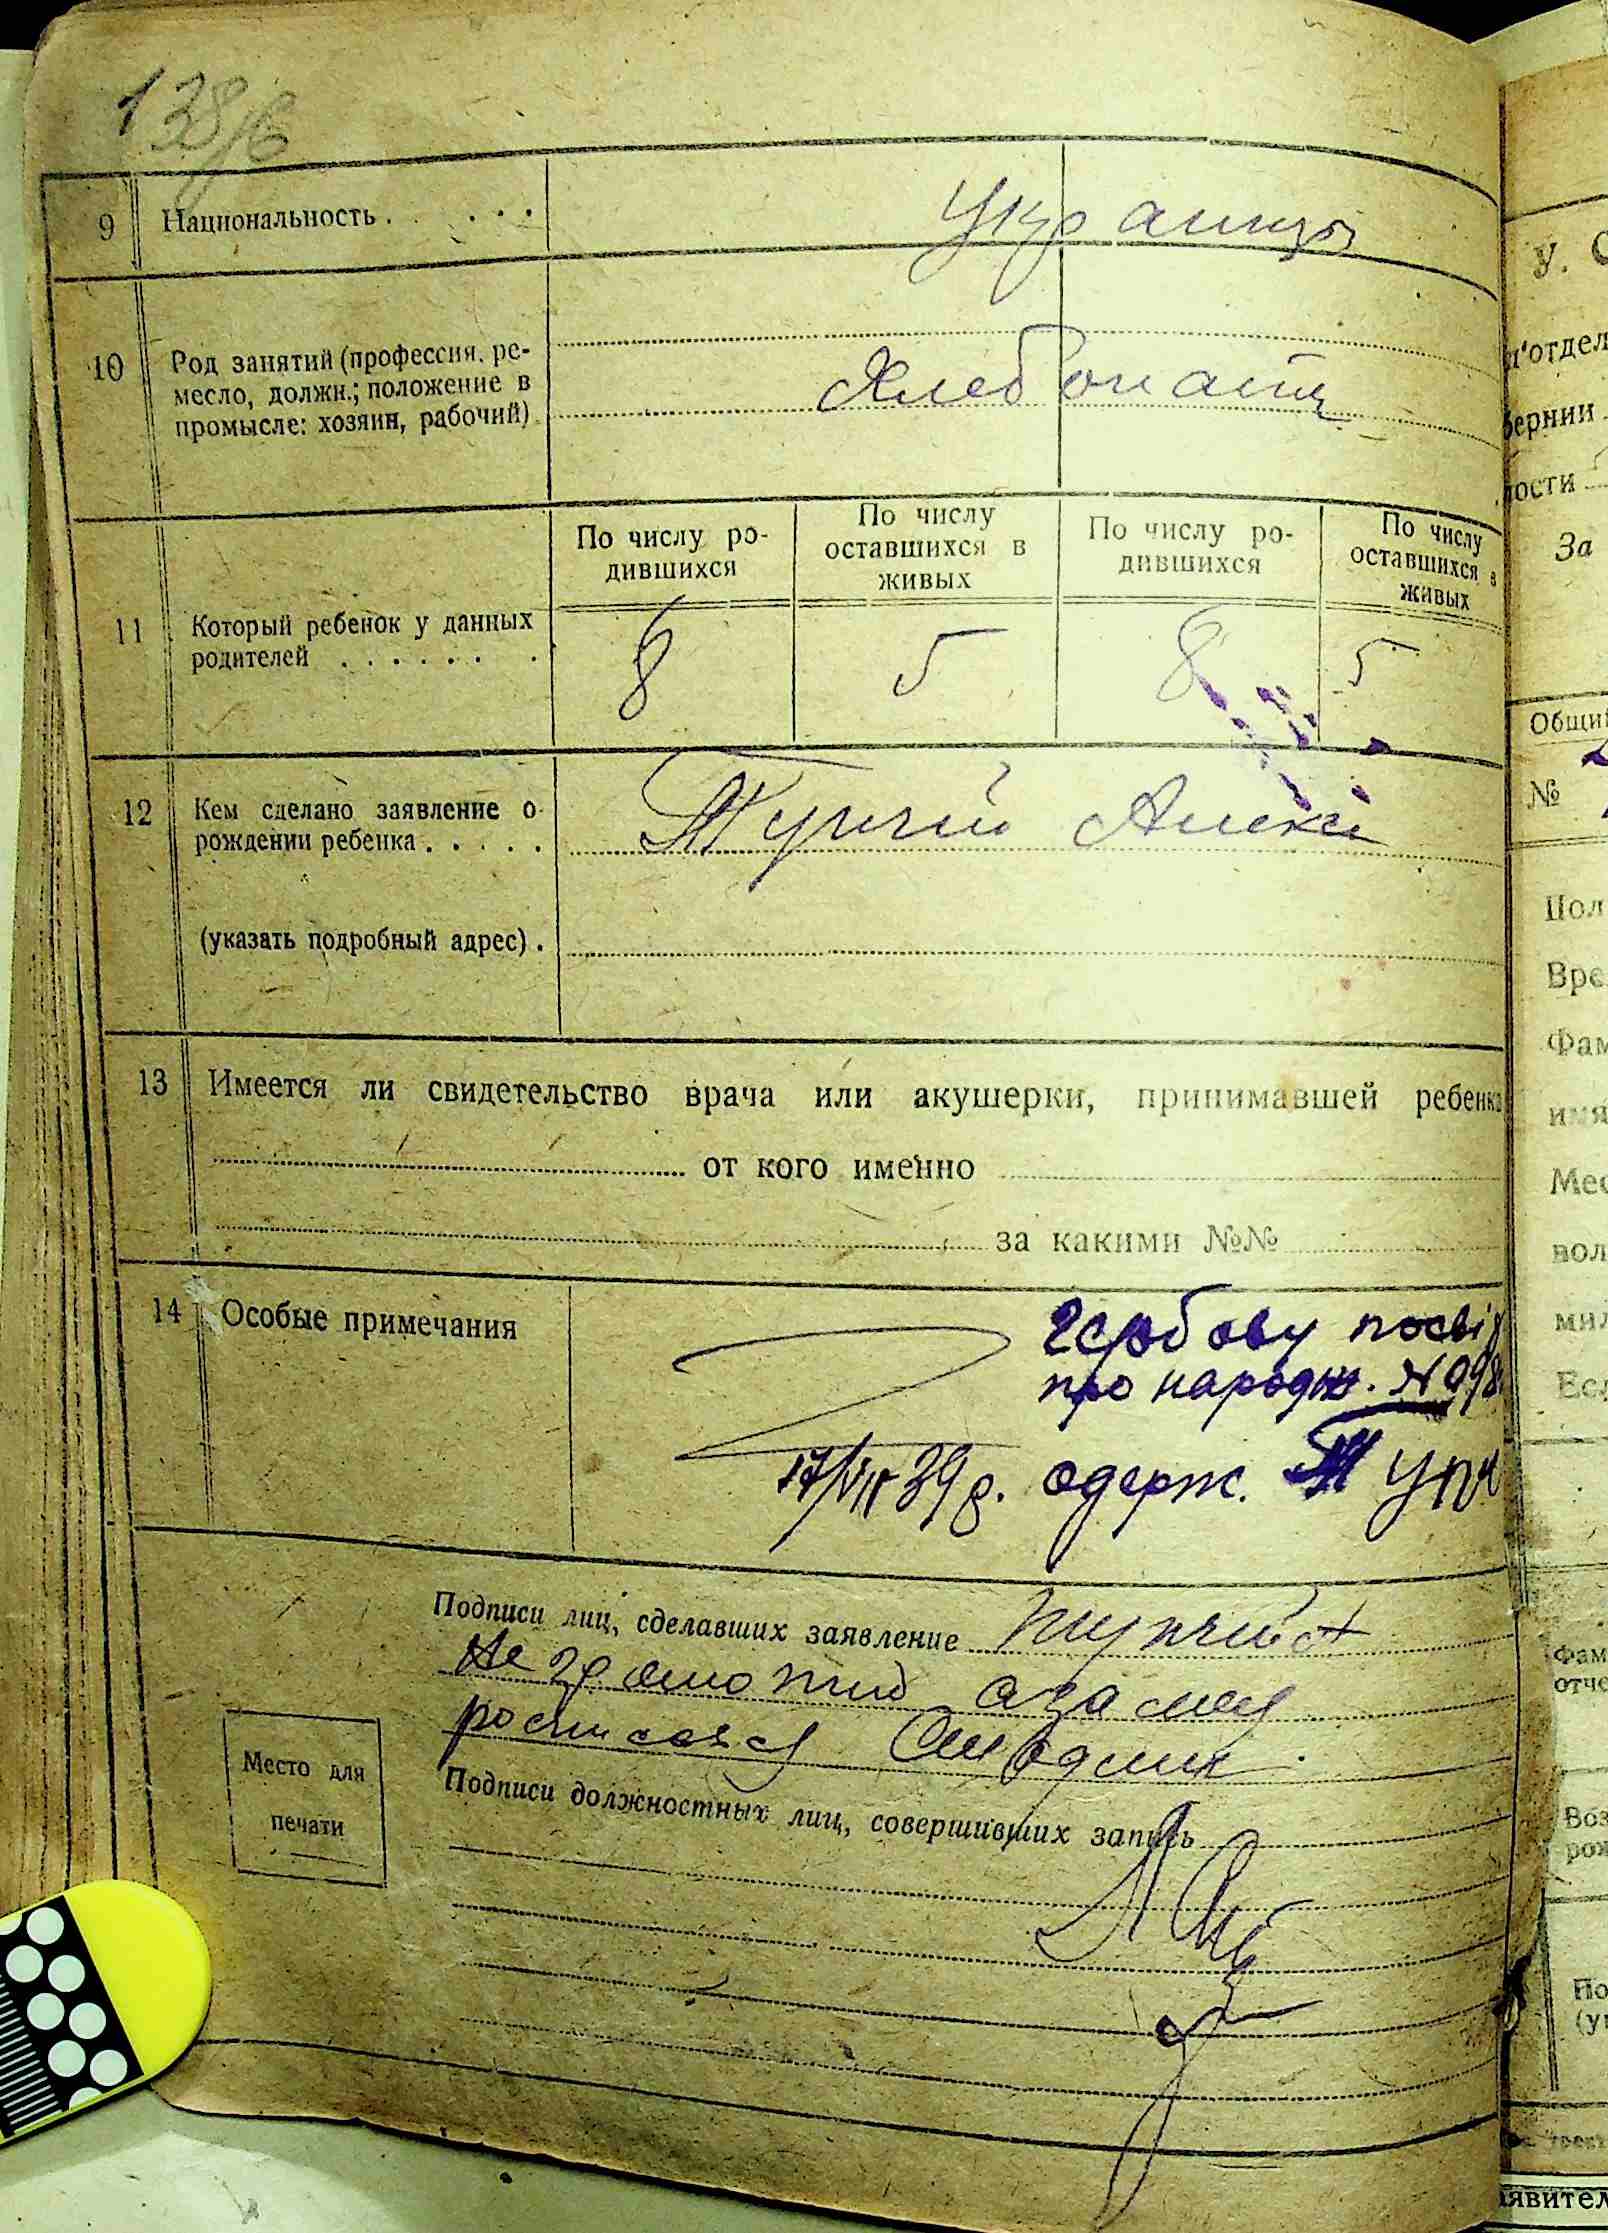 138/в
9 Национальность . . . . . Украинцы
10 Род занятий (профессия, ре-
месло, должн.; положение в
промысле: хозяин, рабочий)
Хлебопашц
По числу ро-
дившихся
По числу
оставшихся в
живых
По числу ро-
дившихся
По числу
оставшихся в
живых
11 Который ребенок у данных
родителей . . . . . . .
8 5 8 5
12 Кем сделано заявление о
рождении ребенка . . . . .
Тупчий Алексе
(указать подробный адрес) .
13 Имеется ли свидетельство врача или акушерки, принимавшей ребенка
от кого именно
за какими №№
14 Особые примечания
Гербову посвід
про народж. №098
17/VII 39 р. одерж. Тупч
Подписи лиц, сделавших заявление Тупчий А
Не грамотний а за него
росписался
Место для
печати
Подписи должностных лиц, совершивших запись
у. С
п'отдел
бернии
ности
За
Общий
№
Пол
Вре
Фам
имя
Мес
вол
мил
Есл
Фам
отче
Воз
рож
По
(ук
аявител